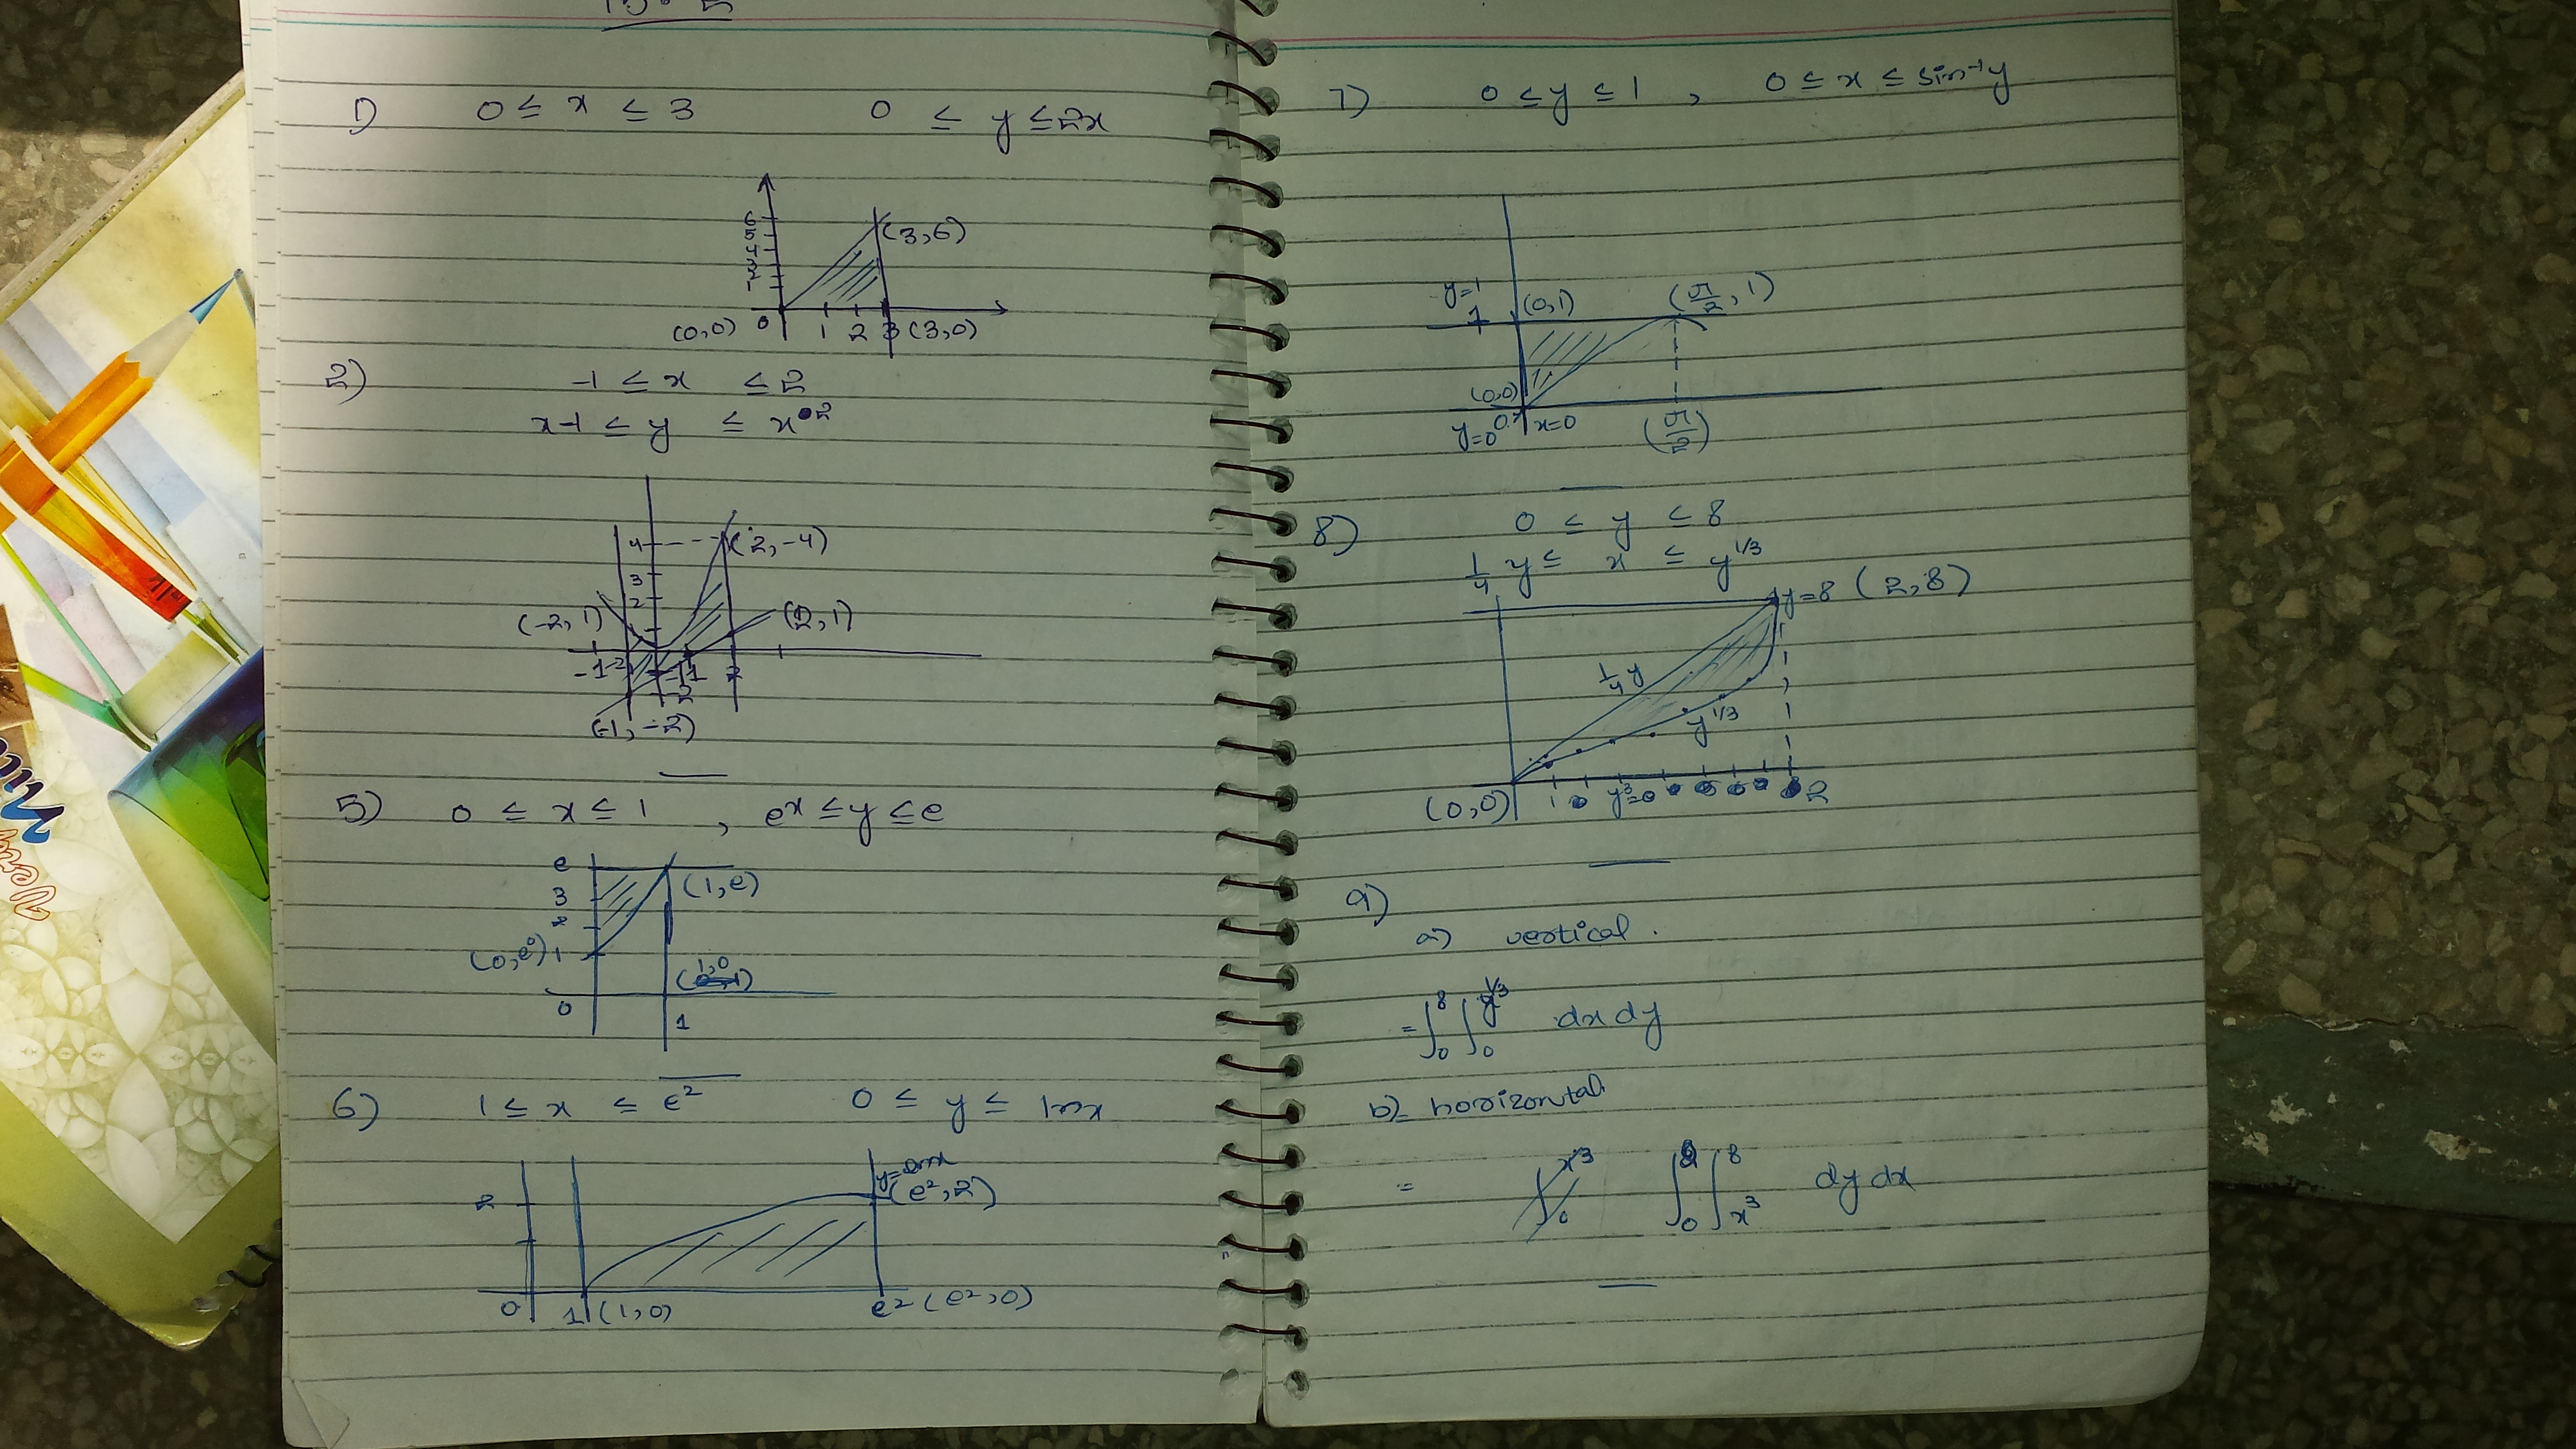 15.2
1) 0 ≤ x ≤ 3 0 ≤ y ≤ 2x
6
5
4
3
2
1
(3,6)
(0,0) 0 1 2 3 (3,0)
2) -1 ≤ x ≤ 2
x-1 ≤ y ≤ x²
4 (2,-4)
3
2
(-2,1) (2,1)
-1 -2 -1 1 2
-2
(-1,-2)
5) 0 ≤ x ≤ 1 , eˣ ≤ y ≤ e
e
3 (1,e)
2
(0,e⁰) 1
(1,0)
0 1
6) 1 ≤ x ≤ e² 0 ≤ y ≤ lnx
y=lnx
2 (e²,2)
0 1 (1,0) e² (e²,0)
7) 0 ≤ y ≤ 1 , 0 ≤ x ≤ sin⁻¹y
y=1 (0,1) (π/2, 1)
1
(0,0)
y=0 x=0 (π/2)
8) 0 ≤ y ≤ 8
1/4 y ≤ x ≤ y^1/3
y=8 (2,8)
1/4 y
y^1/3
(0,0) 1 2
9)
a) vertical.
= ∫₀⁸ ∫₀^y^1/3 dx dy
b) horizontal
= ∫₀² ∫ₓ³⁸ dy dx